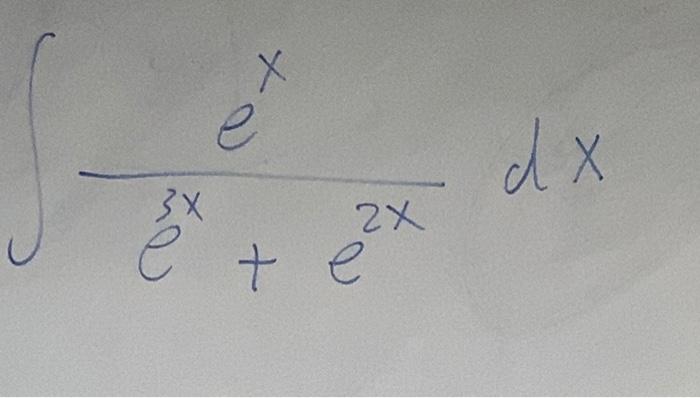 ∫ e^x / (e^{3x} + e^{2x}) dx